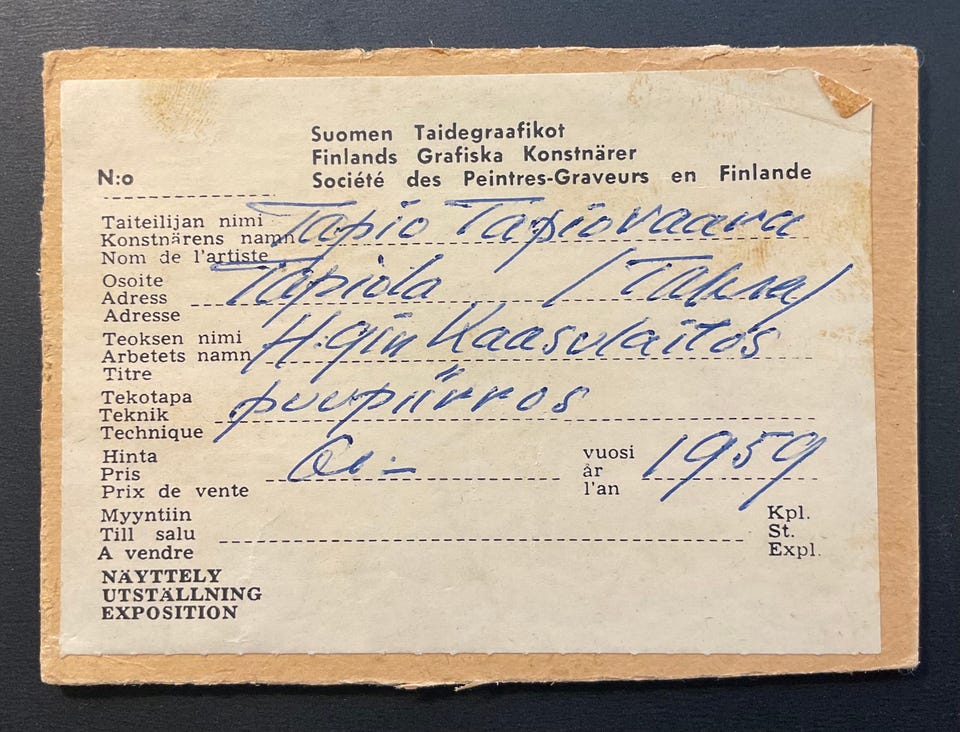 Suomen Taidegraafikot
Finlands Grafiska Konstnärer
N:o Société des Peintres-Graveurs en Finlande
Taiteilijan nimi Tapio Tapiovaara
Konstnärens namn
Nom de l'artiste
Osoite
Adress Tapiola
Adresse
Teoksen nimi H:gin Kaasulaitos
Arbetets namn
Titre
Tekotapa puupiirros
Teknik
Technique
Hinta vuosi
Pris år 1959
Prix de vente l'an
Myyntiin Kpl.
Till salu St.
A vendre Expl.
NÄYTTELY
UTSTÄLLNING
EXPOSITION